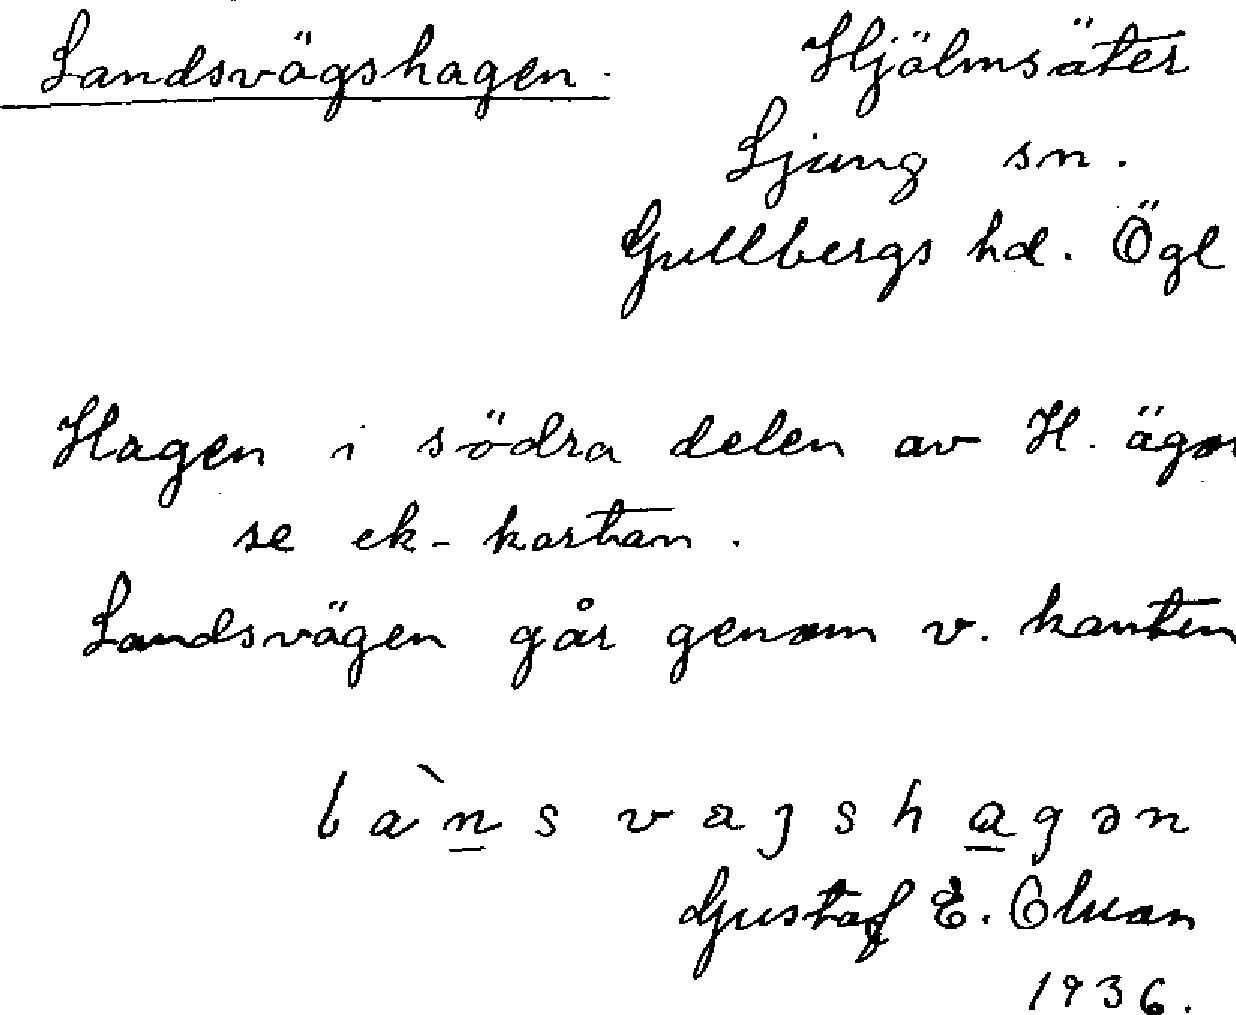 Landsvägshagen.
Hjälmsäter
Ljung sn.
Gullbergs hd. Ögl
Hagen i södra delen av H. ägor
se ek-kartan.
Landsvägen går genom v. kanten
làn̲svagsha̲gən
Gustaf E. Olsson
1936.